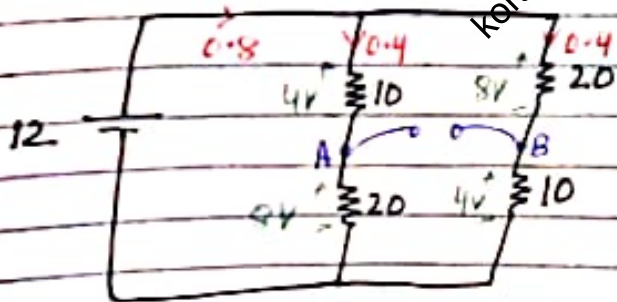 0.8 0.4 0.4
4V 10 8V 20
12
A B
20 4V 10